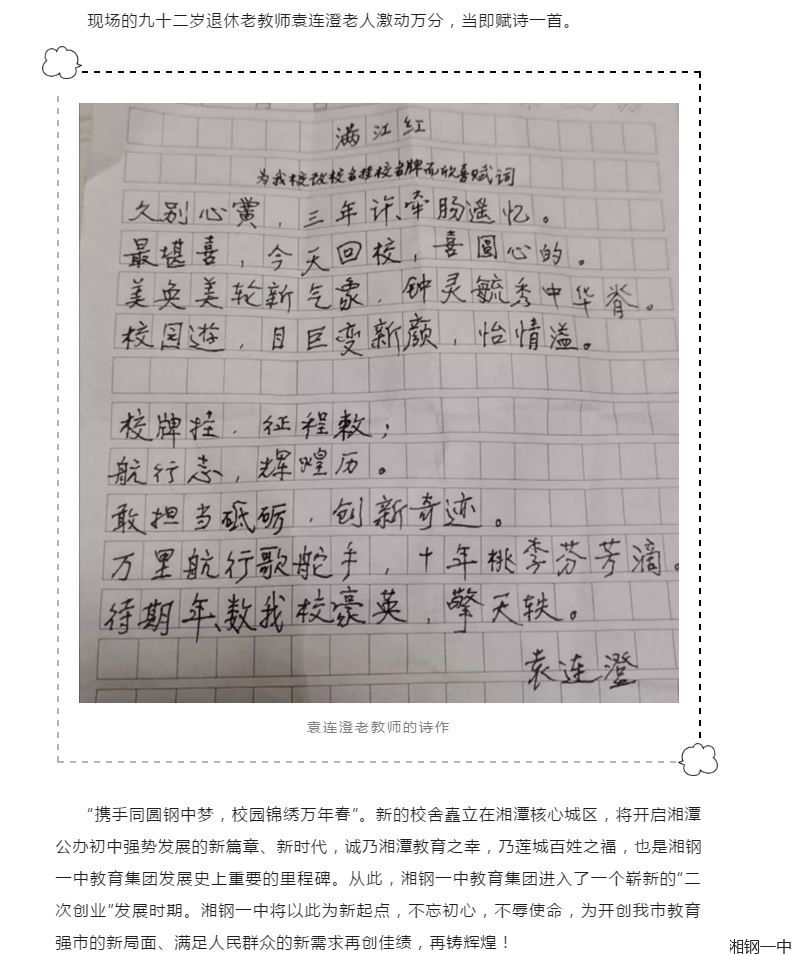 现场的九十二岁退休老教师袁连澄老人激动万分，当即赋诗一首。
满江红
为我校改校名挂校名牌而欣喜赋词
久别心黉，三年许、牵肠遥忆。
最堪喜，今天回校，喜圆心的。
美奂美轮新气象，钟灵毓秀中华脊。
校园游，目巨变新颜，怡情溢。
校牌挂，征程敕；
航行志，辉煌历。
敢担当砥砺，创新奇迹。
万里航行歌舵手，十年桃李芬芳滴。
待期年、数我校豪英，擎天轶。
袁连澄
袁连澄老教师的诗作
“携手同圆钢中梦，校园锦绣万年春”。新的校舍矗立在湘潭核心城区，将开启湘潭
公办初中强势发展的新篇章、新时代，诚乃湘潭教育之幸，乃莲城百姓之福，也是湘钢
一中教育集团发展史上重要的里程碑。从此，湘钢一中教育集团进入了一个崭新的“二
次创业”发展时期。湘钢一中将以此为新起点，不忘初心，不辱使命，为开创我市教育
强市的新局面、满足人民群众的新需求再创佳绩，再铸辉煌！
湘钢一中